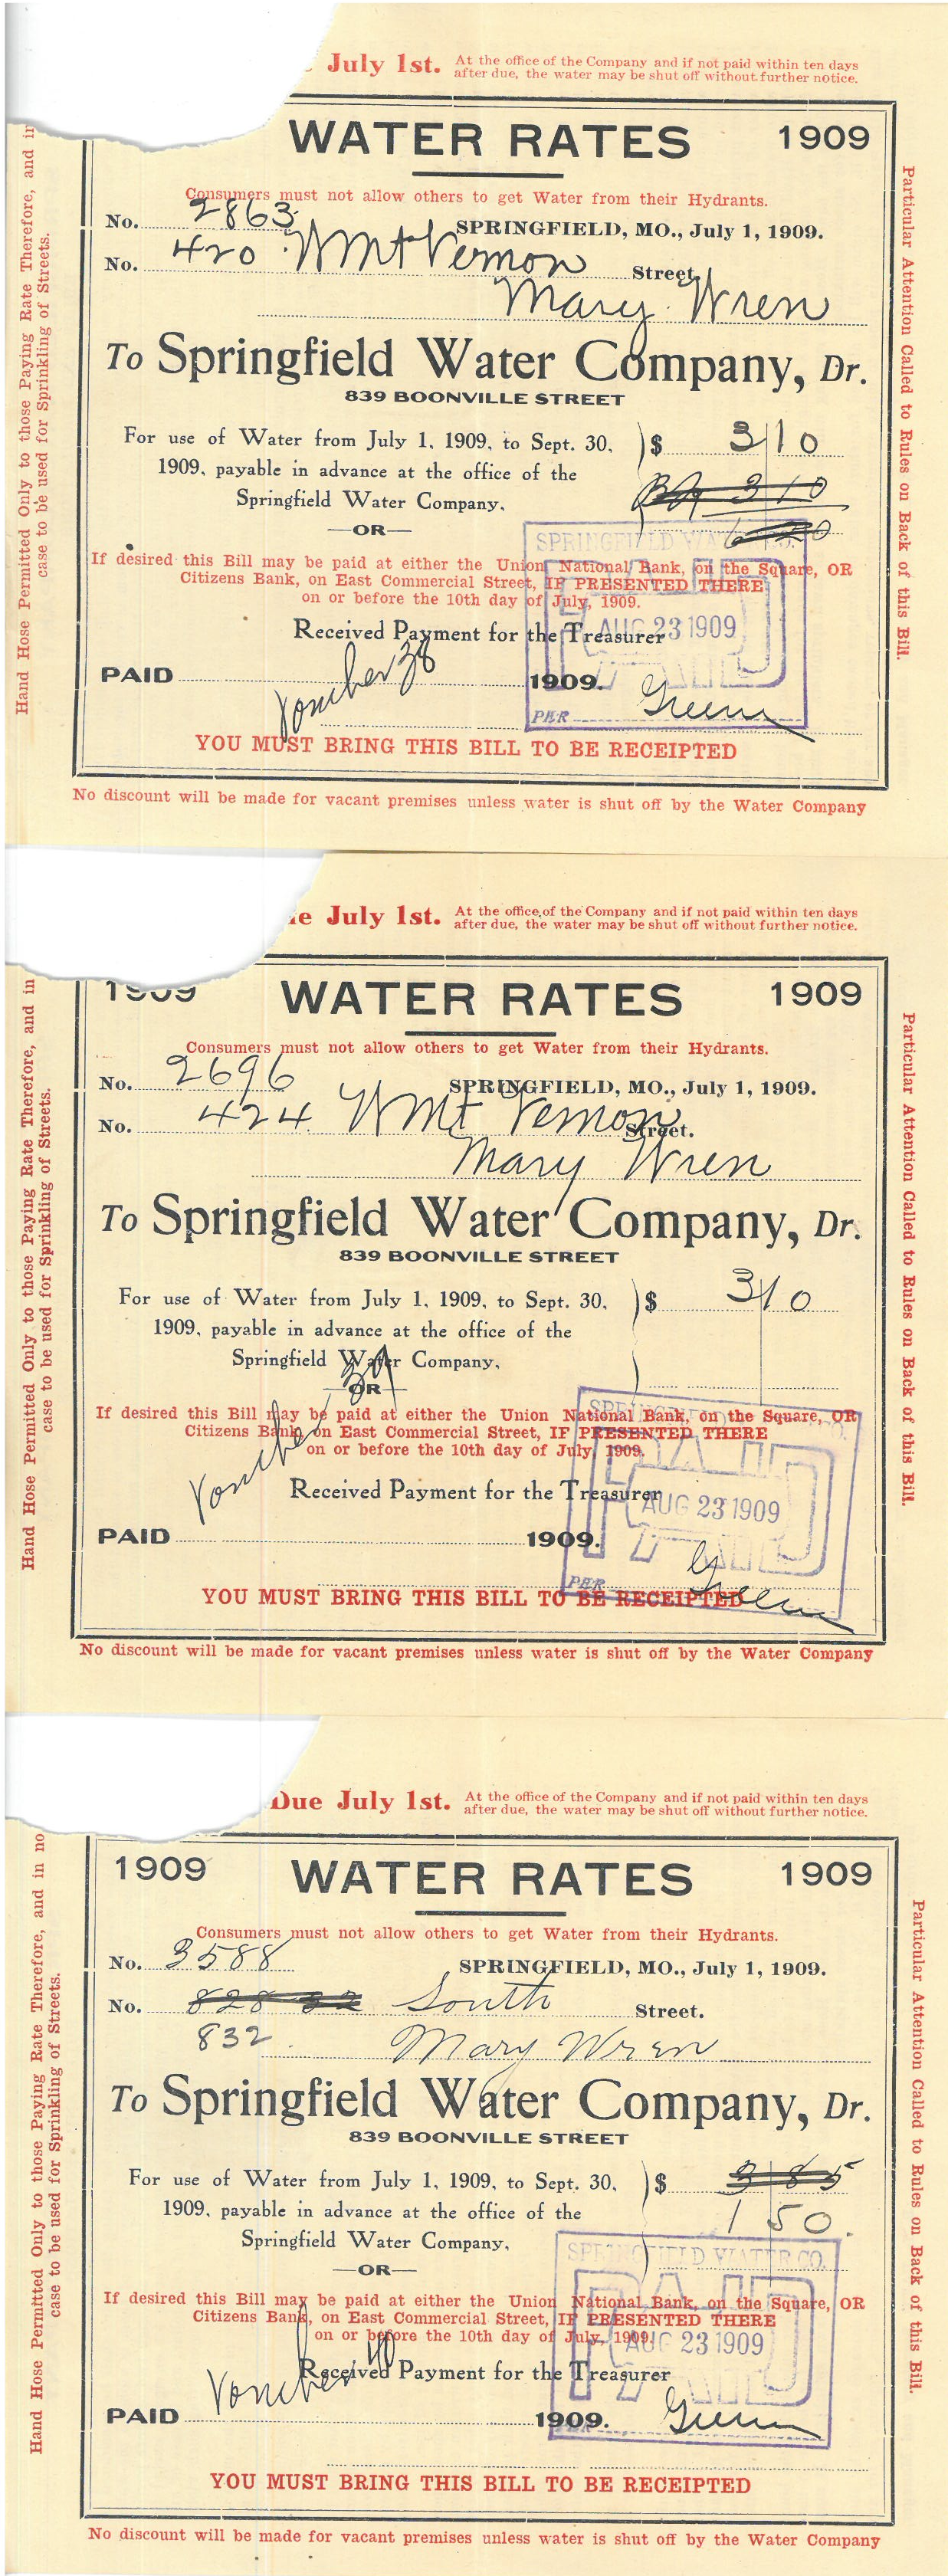 July 1st. At the office of the Company and if not paid within ten days
after due, the water may be shut off without further notice.
WATER RATES 1909
Consumers must not allow others to get Water from their Hydrants.
No. 2863 SPRINGFIELD, MO., July 1, 1909.
No. 420 W Mt Vernon Street
Mary Wren
To Springfield Water Company, Dr.
839 BOONVILLE STREET
For use of Water from July 1, 1909, to Sept. 30, $ 3 10
1909, payable in advance at the office of the 3 10
Springfield Water Company,
—OR—
SPRINGFIELD WATER CO.
If desired this Bill may be paid at either the Union National Bank, on the Square, OR
Citizens Bank, on East Commercial Street, IF PRESENTED THERE
on or before the 10th day of July, 1909.
Received Payment for the Treasurer
PAID
AUG 23 1909
PAID Voucher 38 1909.
PER Green
YOU MUST BRING THIS BILL TO BE RECEIPTED
No discount will be made for vacant premises unless water is shut off by the Water Company
Hand Hose Permitted Only to those Paying Rate Therefore, and in
case to be used for Sprinkling of Streets.
Particular Attention Called to Rules on Back of this Bill.
e July 1st. At the office of the Company and if not paid within ten days
after due, the water may be shut off without further notice.
1909 WATER RATES 1909
Consumers must not allow others to get Water from their Hydrants.
No. 2696 SPRINGFIELD, MO., July 1, 1909.
No. 424 W Mt Vernon Street.
Mary Wren
To Springfield Water Company, Dr.
839 BOONVILLE STREET
For use of Water from July 1, 1909, to Sept. 30, $ 3 10
1909, payable in advance at the office of the
Springfield Water Company,
—OR—
If desired this Bill may be paid at either the Union National Bank, on the Square, OR
Citizens Bank, on East Commercial Street, IF PRESENTED THERE
on or before the 10th day of July, 1909.
Voucher 39
Received Payment for the Treasurer
PAID
AUG 23 1909
PAID 1909.
PER Green
YOU MUST BRING THIS BILL TO BE RECEIPTED
No discount will be made for vacant premises unless water is shut off by the Water Company
Hand Hose Permitted Only to those Paying Rate Therefore, and in
case to be used for Sprinkling of Streets.
Particular Attention Called to Rules on Back of this Bill.
Due July 1st. At the office of the Company and if not paid within ten days
after due, the water may be shut off without further notice.
1909 WATER RATES 1909
Consumers must not allow others to get Water from their Hydrants.
No. 3588 SPRINGFIELD, MO., July 1, 1909.
No. 828 32 South Street.
832 Mary Wren
To Springfield Water Company, Dr.
839 BOONVILLE STREET
For use of Water from July 1, 1909, to Sept. 30, $ 3 85
1909, payable in advance at the office of the 1 50.
Springfield Water Company,
—OR—
SPRINGFIELD WATER CO.
If desired this Bill may be paid at either the Union National Bank, on the Square, OR
Citizens Bank, on East Commercial Street, IF PRESENTED THERE
on or before the 10th day of July, 1909.
PAID
AUG 23 1909
Received Payment for the Treasurer
Voucher 40
PAID 1909. Green
YOU MUST BRING THIS BILL TO BE RECEIPTED
No discount will be made for vacant premises unless water is shut off by the Water Company
Hand Hose Permitted Only to those Paying Rate Therefore, and in no
case to be used for Sprinkling of Streets.
Particular Attention Called to Rules on Back of this Bill.